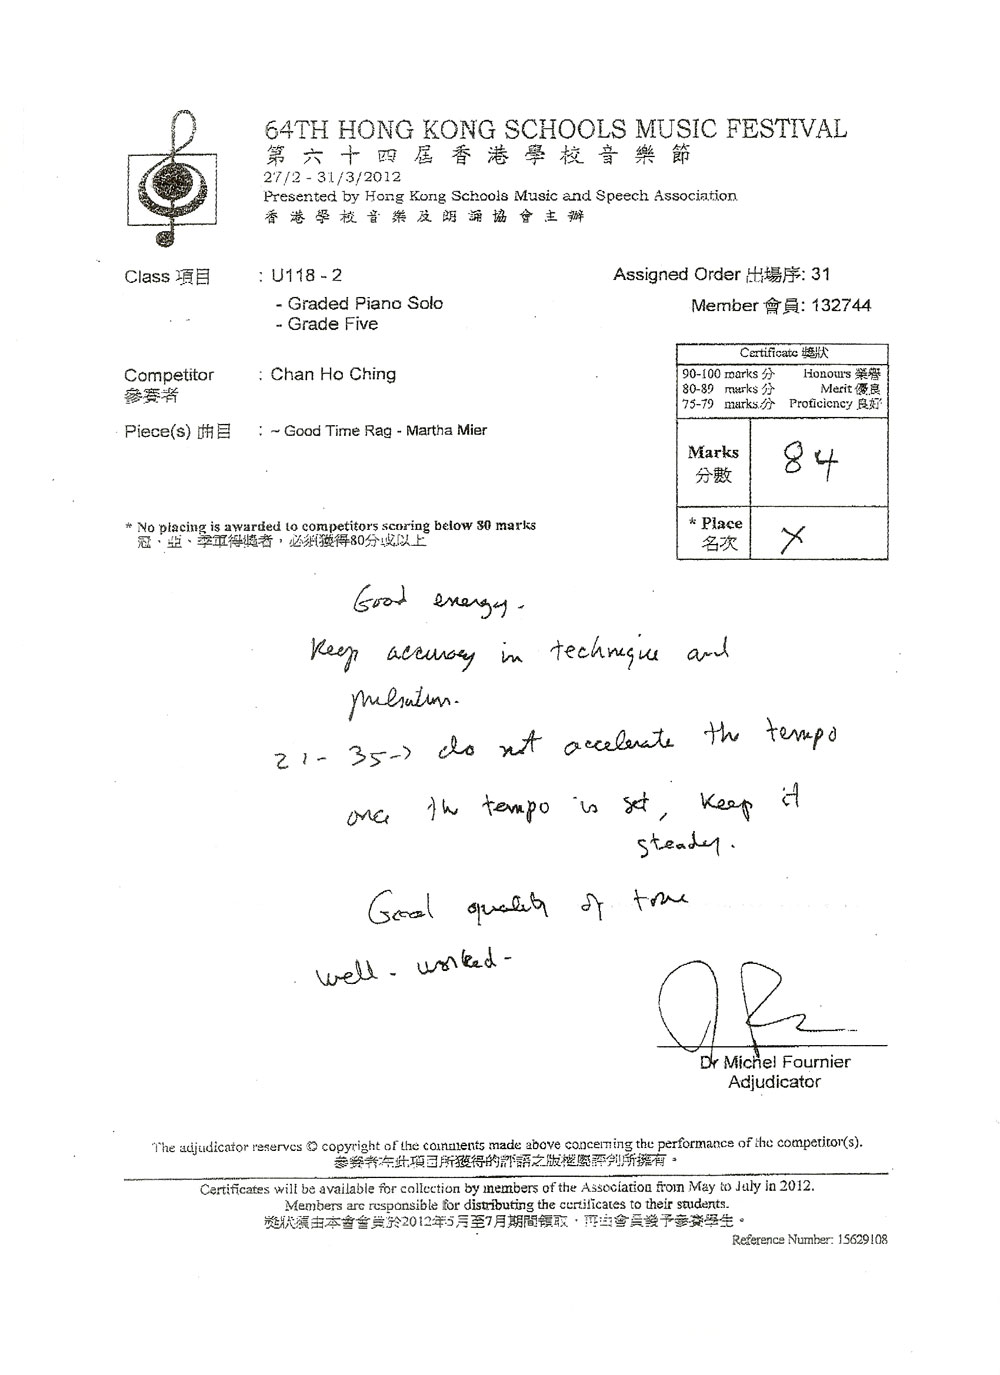 64TH HONG KONG SCHOOLS MUSIC FESTIVAL
第六十四屆香港學校音樂節
27/2 - 31/3/2012
Presented by Hong Kong Schools Music and Speech Association
香港學校音樂及朗誦協會主辦
Class 項目 : U118 - 2
- Graded Piano Solo
- Grade Five
Assigned Order 出場序: 31
Member 會員: 132744
Competitor : Chan Ho Ching
參賽者
Piece(s) 曲目 : ~ Good Time Rag - Martha Mier
Certificate 獎狀
90-100 marks 分 Honours 榮譽
80-89 marks 分 Merit 優良
75-79 marks 分 Proficiency 良好
Marks 84
分數
* Place X
名次
* No placing is awarded to competitors scoring below 80 marks
冠、亞、季軍得獎者，必須獲得80分或以上
Good energy.
Keep accuracy in technique and
pulsation.
21 - 35 -> do not accelerate the tempo
once the tempo is set, keep it
steady.
Good quality of tone
well - worked -
Dr Michel Fournier
Adjudicator
The adjudicator reserves © copyright of the comments made above concerning the performance of the competitor(s).
參賽者在此項目所獲得的評語之版權屬評判所擁有。
Certificates will be available for collection by members of the Association from May to July in 2012.
Members are responsible for distributing the certificates to their students.
獎狀須由本會會員於2012年5月至7月期間領取，再由會員發予參賽學生。
Reference Number: 15629108